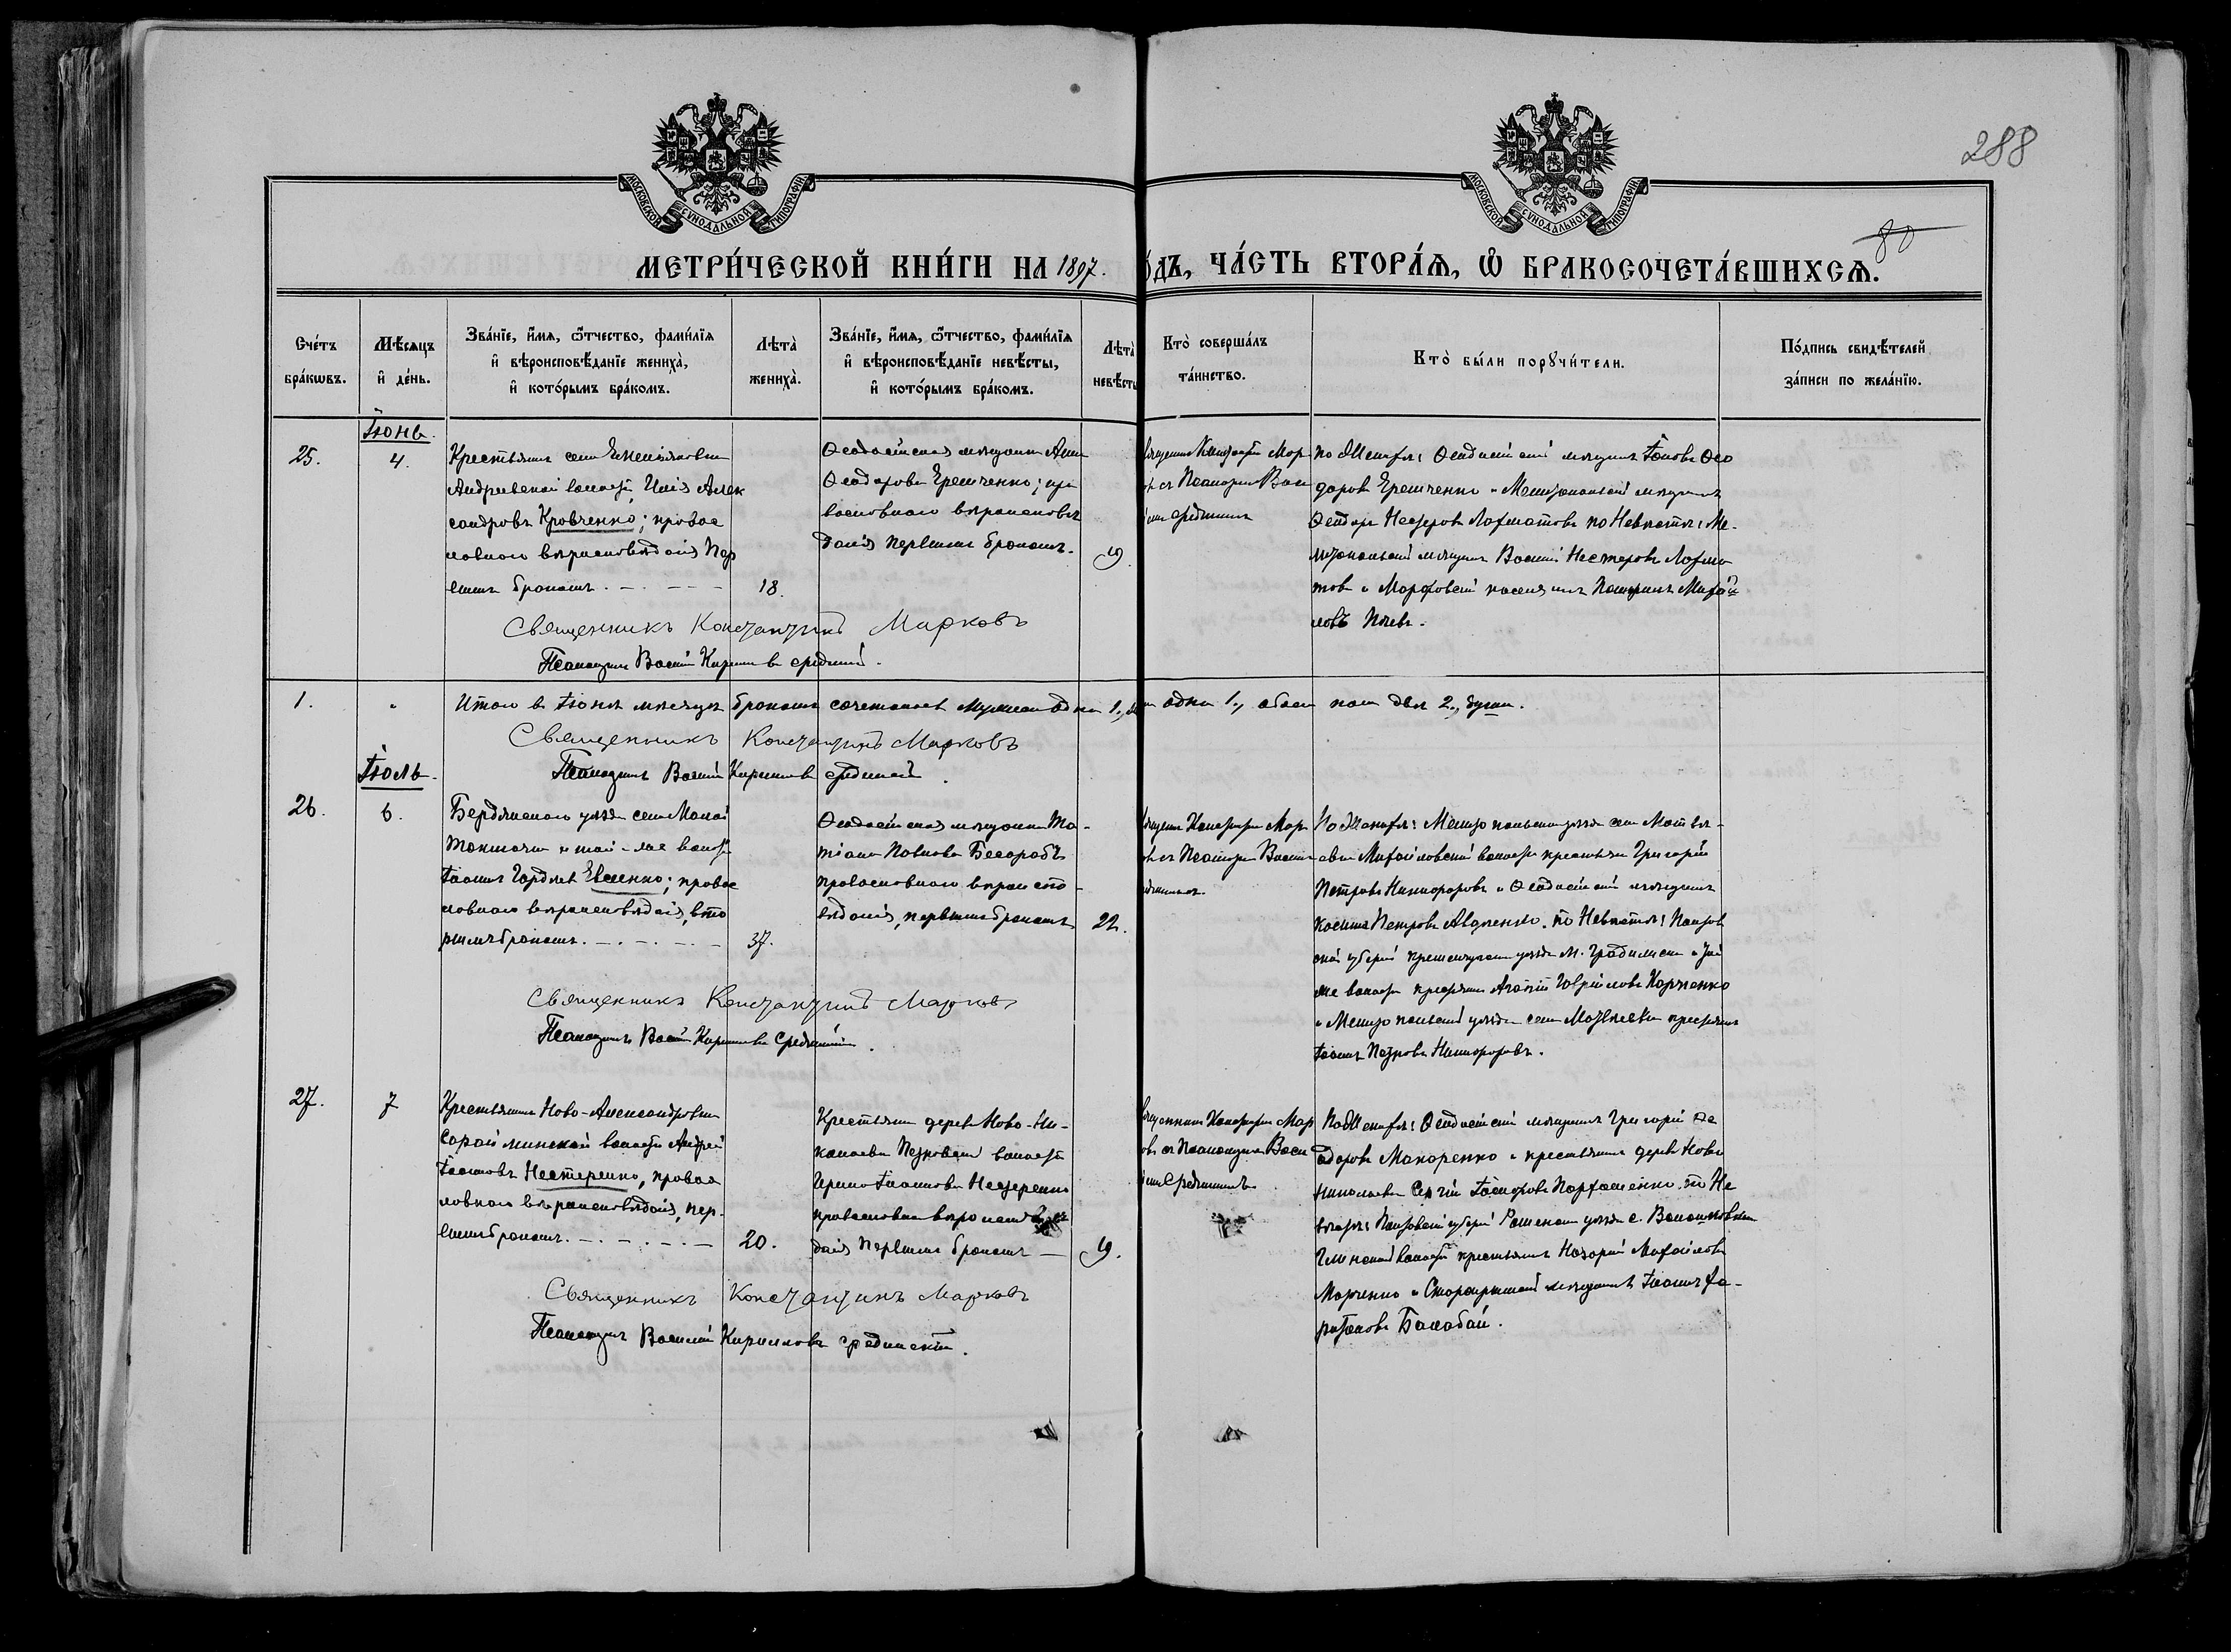 288
80
МОСКОВСКОЙ СѴНОДАЛЬНОЙ ТИПОГРАФІИ
МОСКОВСКОЙ СѴНОДАЛЬНОЙ ТИПОГРАФІИ
МЕТРИ́ЧЕСКОЙ КНИ́ГИ НА 1897. ОДЪ, ЧА́СТЬ ВТОРА́Я, Ѡ БРАКОСОЧЕТА́ВШИХСЯ.
Сче́тъ бра́кѡвъ.
Мѣ́сяцъ и҆ де́нь.
Зва́нїе, и҆́мя, ѻ҆́тчество, фами́лїя
и҆ вѣроисповѣ́данїе жениха̀,
и҆ кото́рымъ бра́комъ.
Лѣта̀ жениха̀.
Зва́нїе, и҆́мя, ѻ҆́тчество, фами́лїя
и҆ вѣроисповѣ́данїе невѣ́сты,
и҆ кото́рымъ бра́комъ.
Лѣта̀ невѣ́сты
Кто̀ соверша́лъ та́инство.
Кто̀ бы́ли порꙋчи́тели.
По́дпись свидѣ́телей за́писи по жела́нїю.
Іюнь
25.
4.
Крестьянинъ села
Андреевской волости, Илія Алек
сандровъ Кравченко; правос
лавнаго вѣроисповѣданія пер
вымъ бракомъ.
18.
Ѳеодосійская мѣщанка Анна
Ѳеодорова Гречченко; пра
вославнаго вѣроисповѣ
данія первымъ бракомъ.
19.
Священникъ Константинъ Мар
ковъ съ Псаломщ. Васи
Срединскимъ
По Женихѣ: Ѳеодосійскій мѣщанинъ Іаковъ Ѳео
доровъ Гречченко и Мелитопольскій мѣщанинъ
Ѳеодоръ Нестеровъ Лохматовъ по Невѣстѣ: Ме
литопольскій мѣщанинъ Василій Нестеровъ Лохма
товъ и Михаи
ловъ
Священникъ Константинъ Марковъ
Псаломщикъ Василій Кирилловъ Срединскій.
1.
Итого въ Іюнѣ мѣсяцѣ бракомъ сочеталось мужеска одна 1., одна 1., обоего пола двѣ 2., души.
Священникъ Константинъ Марковъ
Псаломщикъ Василій Кирилловъ Срединскій.
Іюль
26.
6.
Бердянскаго уѣзда села Малой
Токмачки волости
Іоаннъ Гордѣевъ Евсенко; правос
лавнаго вѣроисповѣданія, вто
рымъ бракомъ.
37.
Ѳеодосійская мѣщанка Та
тіана Павлова Бесарабъ
православнаго вѣроиспо
вѣданія, первымъ бракомъ
22.
По Женихѣ: Мелитопольскаго уѣзда села Матвѣ
евки Михайловской волости крестьян. Григорій
Петровъ Никифоровъ и Ѳеодосійскій мѣщанинъ
Косьма Петровъ Авдѣенко. по Невѣстѣ: Полтав
ской губерніи Кременчугскаго уѣзда м. Градижска
волости крестьянинъ Агапій Гавріиловъ Карпенко
и Мелитопольскаго уѣзда села Матвѣевки крестьянинъ
Іоаннъ Петровъ Никифоровъ.
Священникъ Константинъ Марковъ
Псаломщикъ Василій Кирилловъ Срединскій.
27.
7
Крестьянинъ Ново-Александровки
Сарайминской волости Андрей
Іоанновъ Нестеренко, правос
лавнаго вѣроисповѣданія, пер
вымъ бракомъ.
20.
Крестьянка дерев. Ново-Ни
колаевки Петровской волости
Ирина Іоаннова Нестеренко
православнаго вѣроисповѣ
данія первымъ бракомъ
19.
Священникъ Константинъ Мар
ковъ съ Псаломщикомъ Васи
Срединскимъ
По Женихѣ: Ѳеодосійскій мѣщанинъ Григорій Ѳе
одоровъ Макаренко и крестьянинъ дерев. Ново
Николаевки Сергій Парфоменко по Не
вѣстѣ: Полтавской губерніи уѣзда с.
волости крестьянинъ Назарій Михайловъ
Марченко и Старокрымскій мѣщанинъ Іоаннъ Ха
ритоновъ Балабай.
Священникъ Константинъ Марковъ
Псаломщикъ Василій Кирилловъ Срединскій.